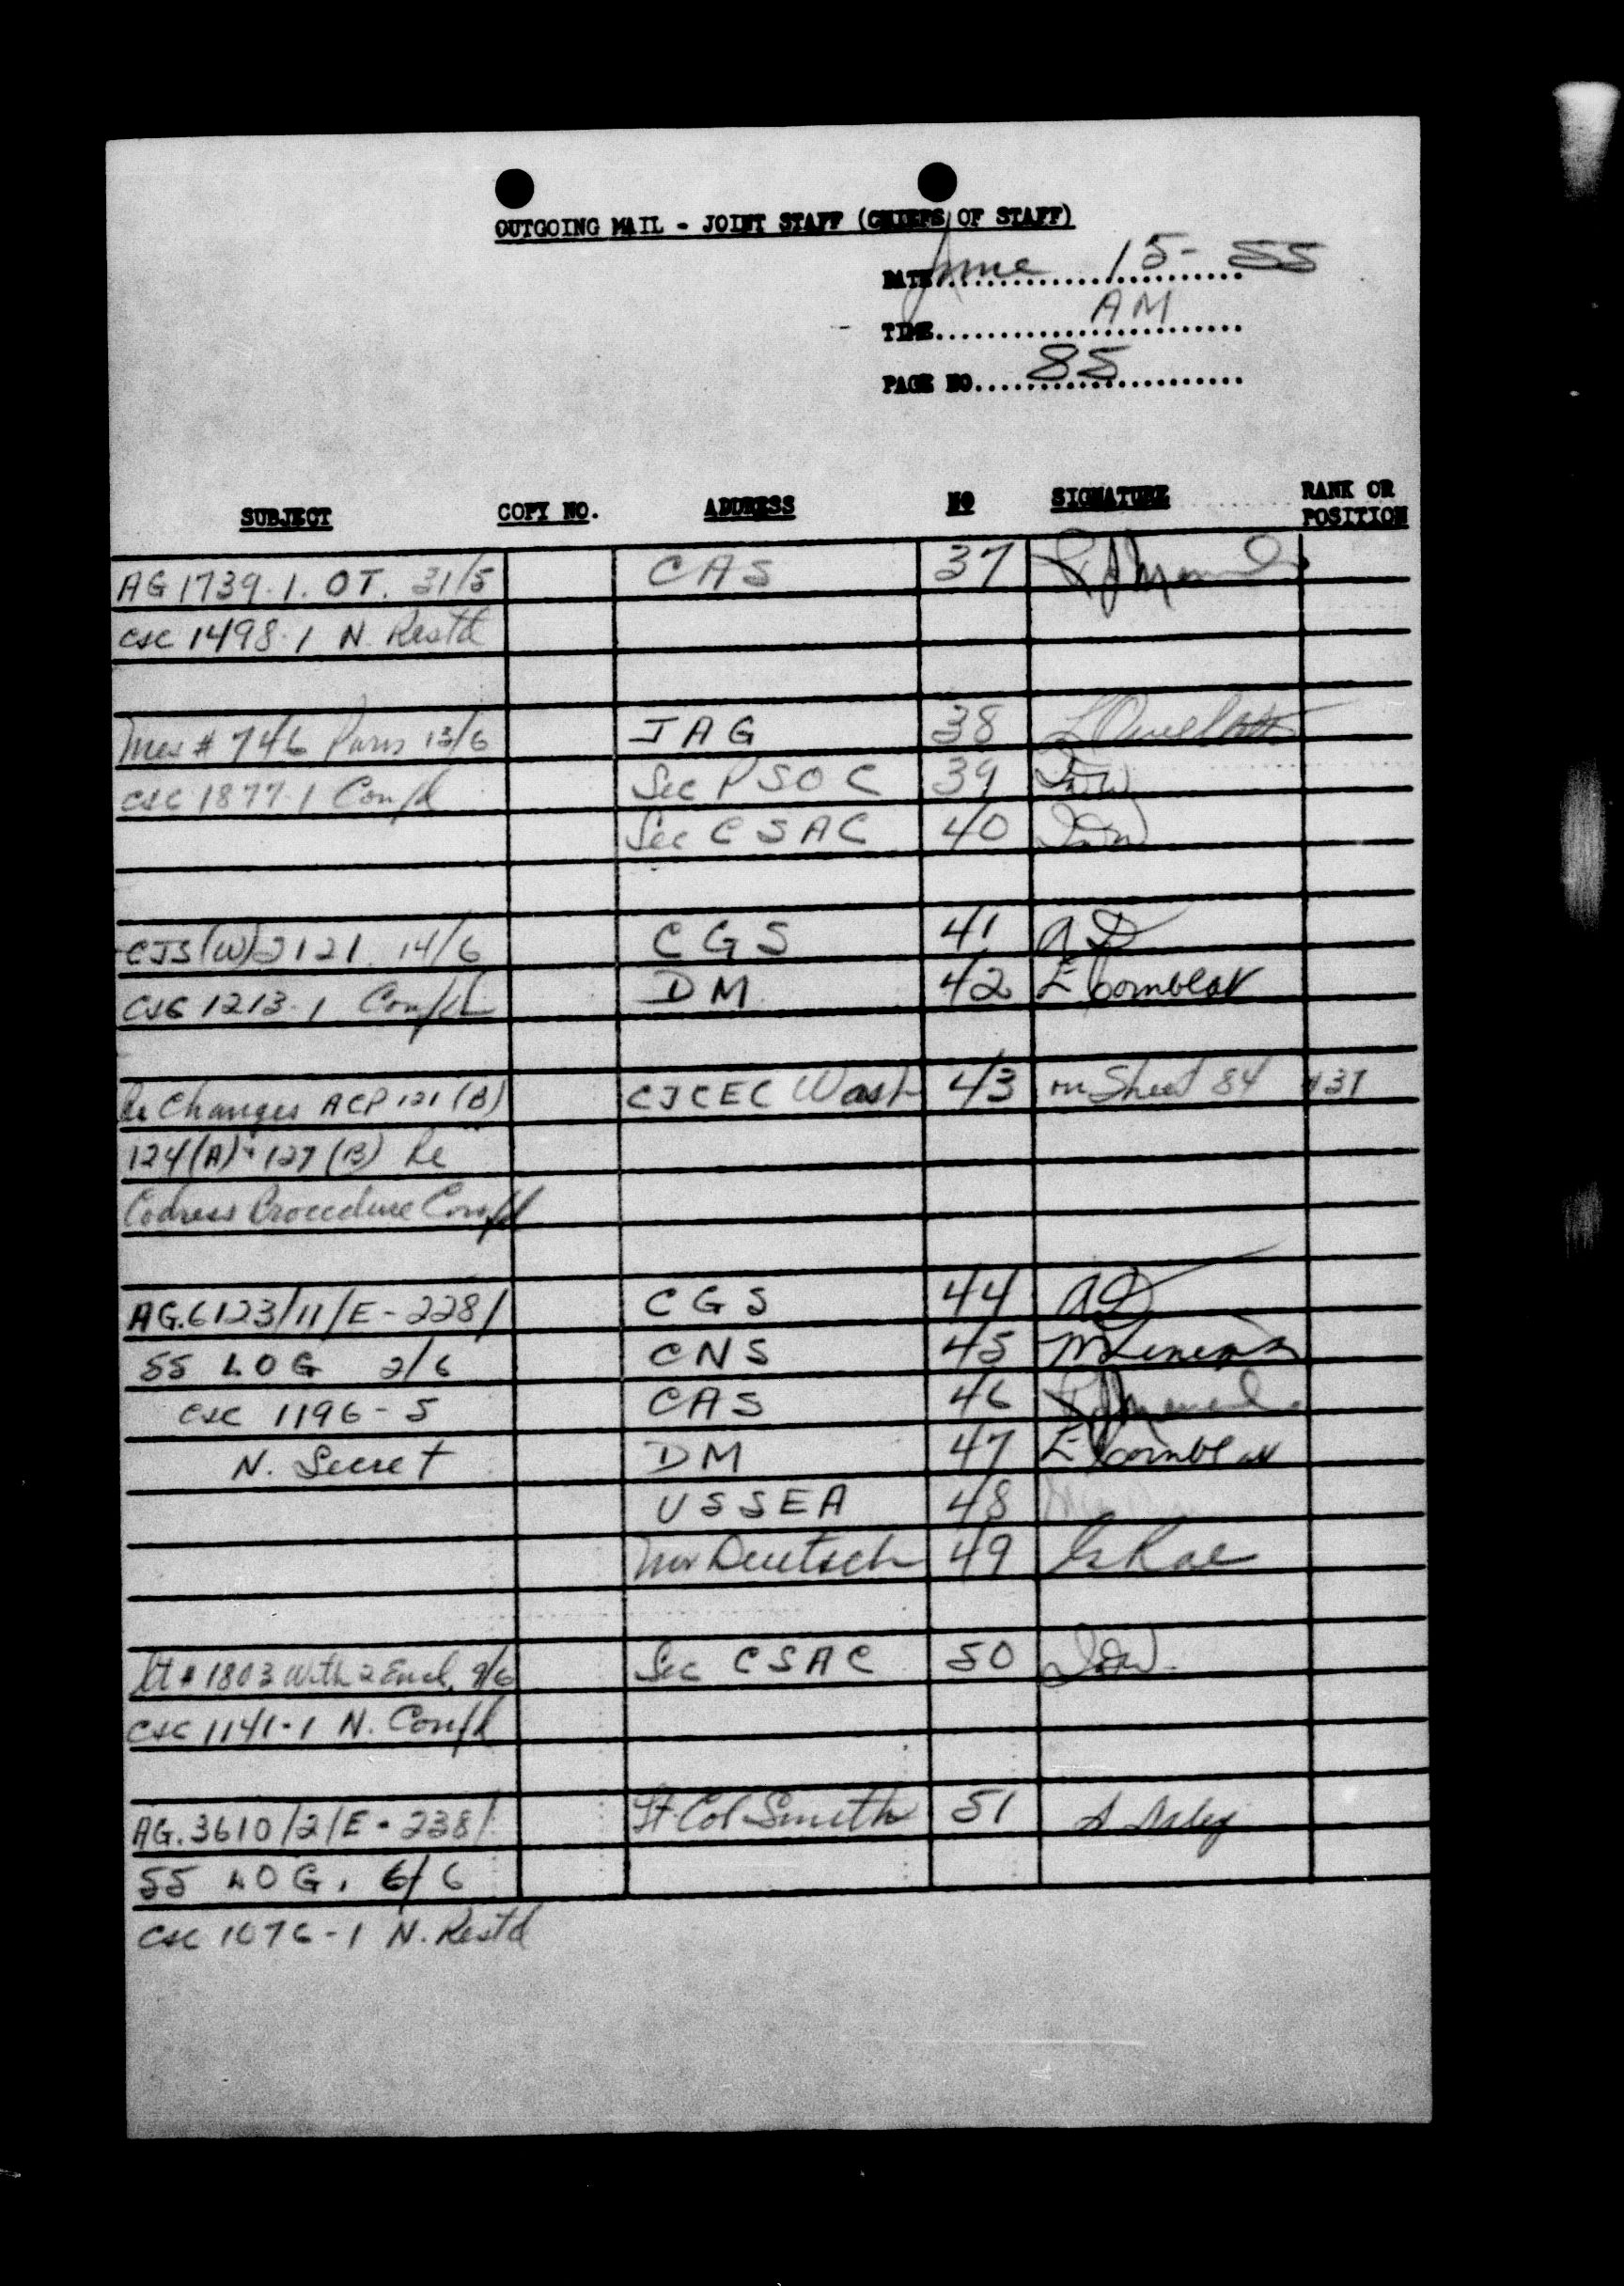 OUTGOING MAIL - JOINT STAFF (CHIEFS OF STAFF)
DATE June 15-55
TIME AM
PAGE NO. 85
SUBJECT COPY NO. ADDRESS NO SIGNATURE RANK OR POSITION
AG 1739.1. OT. 31/5 CAS 37
csc 1498.1 N. Restd
Mes # 746 Paris 13/6 JAG 38
csc 1877.1 Confd Sec PSOC 39
Sec CSAC 40
CJS(W) 2121 14/6 CGS 41 AD
csc 1213.1 Confd DM 42 E
Re Changes ACP 121 (B) CJCEC Wash 43 on Sheet 84 #37
124(A) + 127(B) Re
Codress Procedure Confd
AG.6123/11/E-228/ CGS 44 AD
55 LOG 2/6 CNS 45
csc 1196-5 CAS 46
N. Secret DM 47 E
USSEA 48
Mr Deutsch 49 Rae
Lt # 1803 with 2 Encl. 9/6 Sec CSAC 50
csc 1141-1 N. Confd
AG.3610/2/E-238/ Lt Col Smith 51
55 LOG. 6/6
csc 1076-1 N. Restd